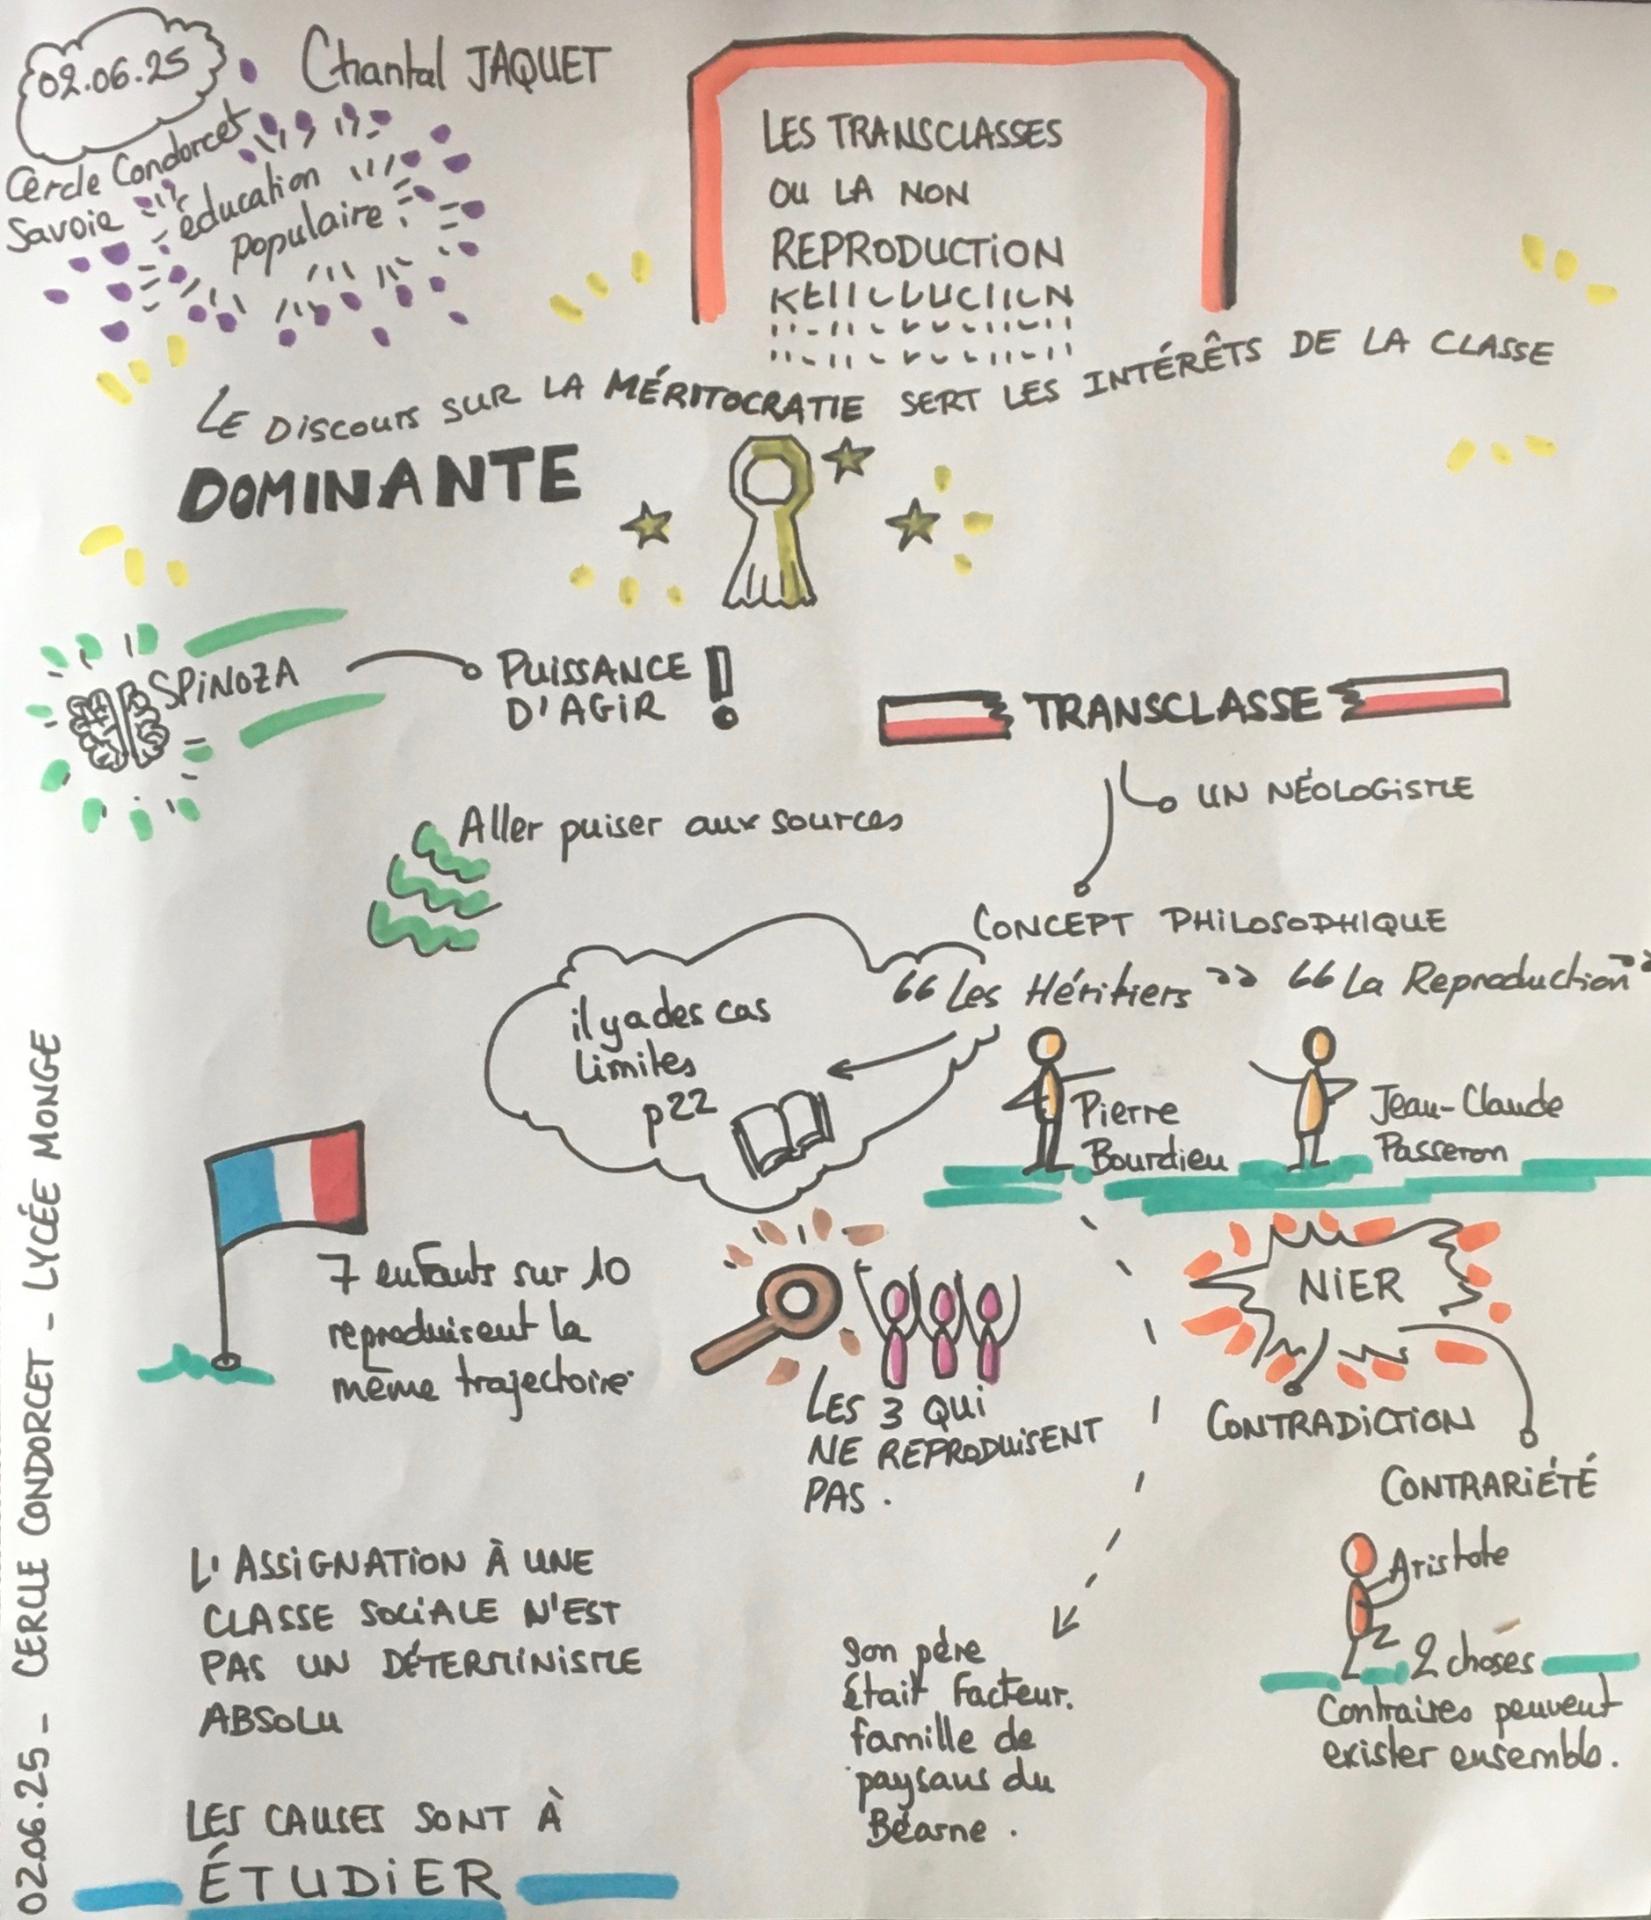 02.06.25
Chantal JAQUET
Cercle Condorcet
Savoie
éducation
populaire
LES TRANSCLASSES
OU LA NON
REPRODUCTION
LE DISCOURS SUR LA MÉRITOCRATIE SERT LES INTÉRÊTS DE LA CLASSE
DOMINANTE
SPINOZA
PUISSANCE !
D'AGIR
TRANSCLASSE
UN NÉOLOGISME
Aller puiser aux sources
CONCEPT PHILOSOPHIQUE
"Les Héritiers" "La Reproduction"
il y a des cas
limites
p22
Pierre
Bourdieu
Jean-Claude
Passeron
7 enfants sur 10
reproduisent la
même trajectoire
LES 3 QUI
NE REPRODUISENT
PAS.
NIER
CONTRADICTION
CONTRARIÉTÉ
Aristote
2 choses
Contraires peuvent
exister ensemble.
L'ASSIGNATION À UNE
CLASSE SOCIALE N'EST
PAS UN DÉTERMINISME
ABSOLU
son père
était facteur.
famille de
paysans du
Béarne.
LES CAUSES SONT À
ÉTUDIER
02.06.25 - CERCLE CONDORCET - LYCÉE MONGE